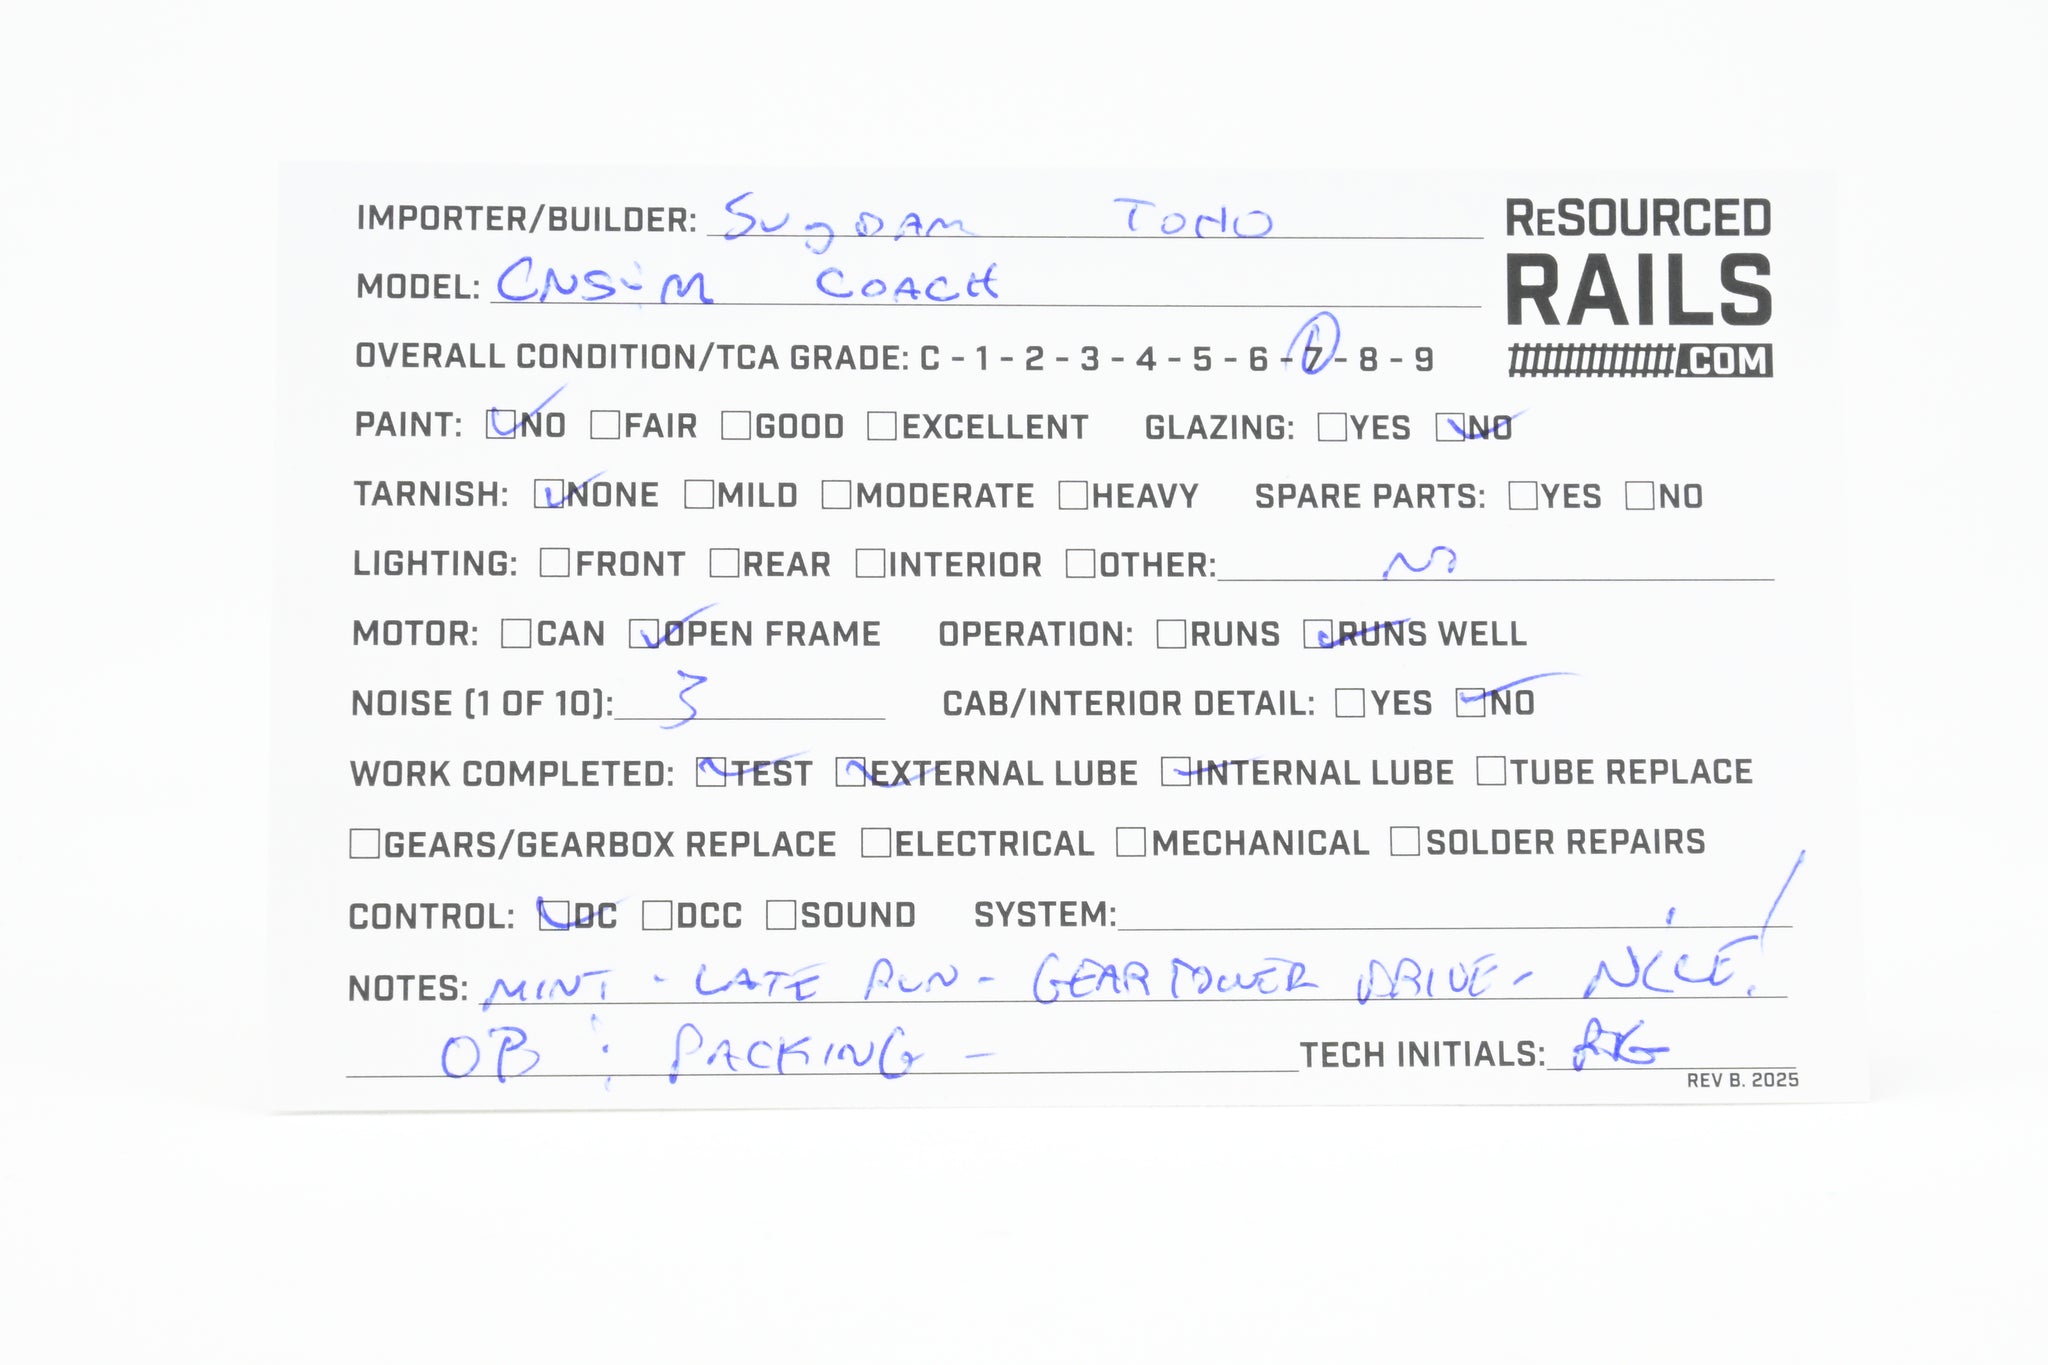 IMPORTER/BUILDER: SUYDAM TOHO
RESOURCED
RAILS
.COM
MODEL: CNS&M COACH
OVERALL CONDITION/TCA GRADE: C - 1 - 2 - 3 - 4 - 5 - 6 - 7 - 8 - 9
PAINT: ☑NO ☐FAIR ☐GOOD ☐EXCELLENT GLAZING: ☐YES ☑NO
TARNISH: ☑NONE ☐MILD ☐MODERATE ☐HEAVY SPARE PARTS: ☐YES ☐NO
LIGHTING: ☐FRONT ☐REAR ☐INTERIOR ☐OTHER: NO
MOTOR: ☐CAN ☑OPEN FRAME OPERATION: ☐RUNS ☑RUNS WELL
NOISE (1 OF 10): 3 CAB/INTERIOR DETAIL: ☐YES ☑NO
WORK COMPLETED: ☑TEST ☑EXTERNAL LUBE ☑INTERNAL LUBE ☐TUBE REPLACE
☐GEARS/GEARBOX REPLACE ☐ELECTRICAL ☐MECHANICAL ☐SOLDER REPAIRS
CONTROL: ☑DC ☐DCC ☐SOUND SYSTEM:
NOTES: MINT - LATE RUN - GEAR TOWER DRIVE - NICE!
OB & PACKING - TECH INITIALS:
REV B. 2025